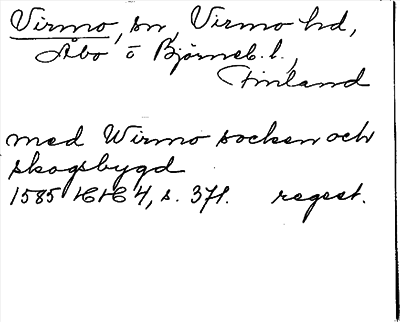 Virmo, sn, Virmo hd,
Åbo o Björneb. l.,
Finland
med Wirmo socken och
skogsbygd
1585 HH 4, s. 371. regest.